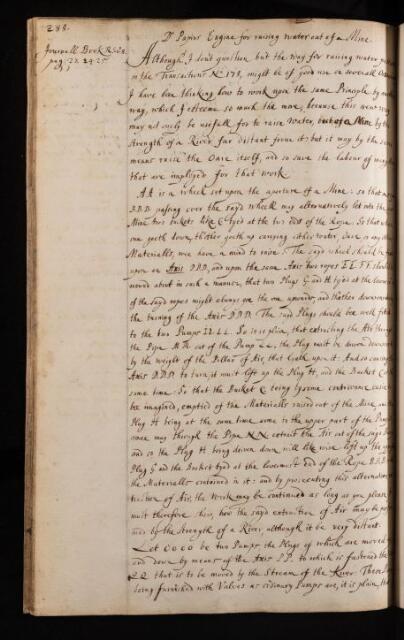 288.
Dr Papins Engine for raising water out of a Mine.
Journall Book R.S.
pag. 23. 24. 25
Although I dont question but the way for raising water
in the Transactions No 178, might be of good use on severall
I have been thinking how to work upon the same Principle by
way, which I esteeme so much the more, because this new way
may not only be usefull for to raise water, out of a Mine by the
strength of a River far distant from it: but it may by the same
means raise the Oare itself, and so save the labour of many
that are imployed for that work
AA is a wheele set upon the aperture of a Mine; so that
BBB passing over the sayd wheele may alternatively let into the
Mine two buckets like C tyed at the two ends of the Rope. So that when
one goeth down, the other goeth up carrying either water, Oare or any other
Materialls, wee have a mind to raise: The sayd wheele should be
upon an Axis DDD, and upon the same Axis two ropes EE. FF. should
moved about in such a manner, that two Plugs G and H tyed at the
of the sayd ropes might always goe the one upwards, and th'other downwards
the turning of the Axis DDD. The sayd Plugs should bee well fitted
to the two Pumps II. LL. So it is plain, that extracting the Air through
the Pipe MM out of the Pump LL, the Plug must be driven downwards
by the weight of the Pillar of Air, that leath upon it: And so causing
Axis DDD to turn it must lift up the Plug H, and the Bucket C
same time: So that the Bucket C being by some contrivance, easie
be imagined, emptied of the Materialls raised out of the Mine, and
Plug H being at the same time come to the upper part of the Pump
once may through the Pipe NN extract the Air out of the sayd
and so the Plug H being driven down, will like wise lift up the
Plug G and the Bucket tyed at the lowermost end of the Rope BBB
the Materialls contained in it: and by prosecuting this alternative
of Air, the Work may be continued as long as you please
must therefore shew, how the sayd extraction of Air may be
and by the strength of a River although it be very distant.
Let OOOO be two Pumps the Plugs of which are moved
and down by means of the Axis PP. to which is fastened the
QQ that is to be moved by the Stream of the River. These
being furnished with Valves as ordinary Pumps are, it is plain, that